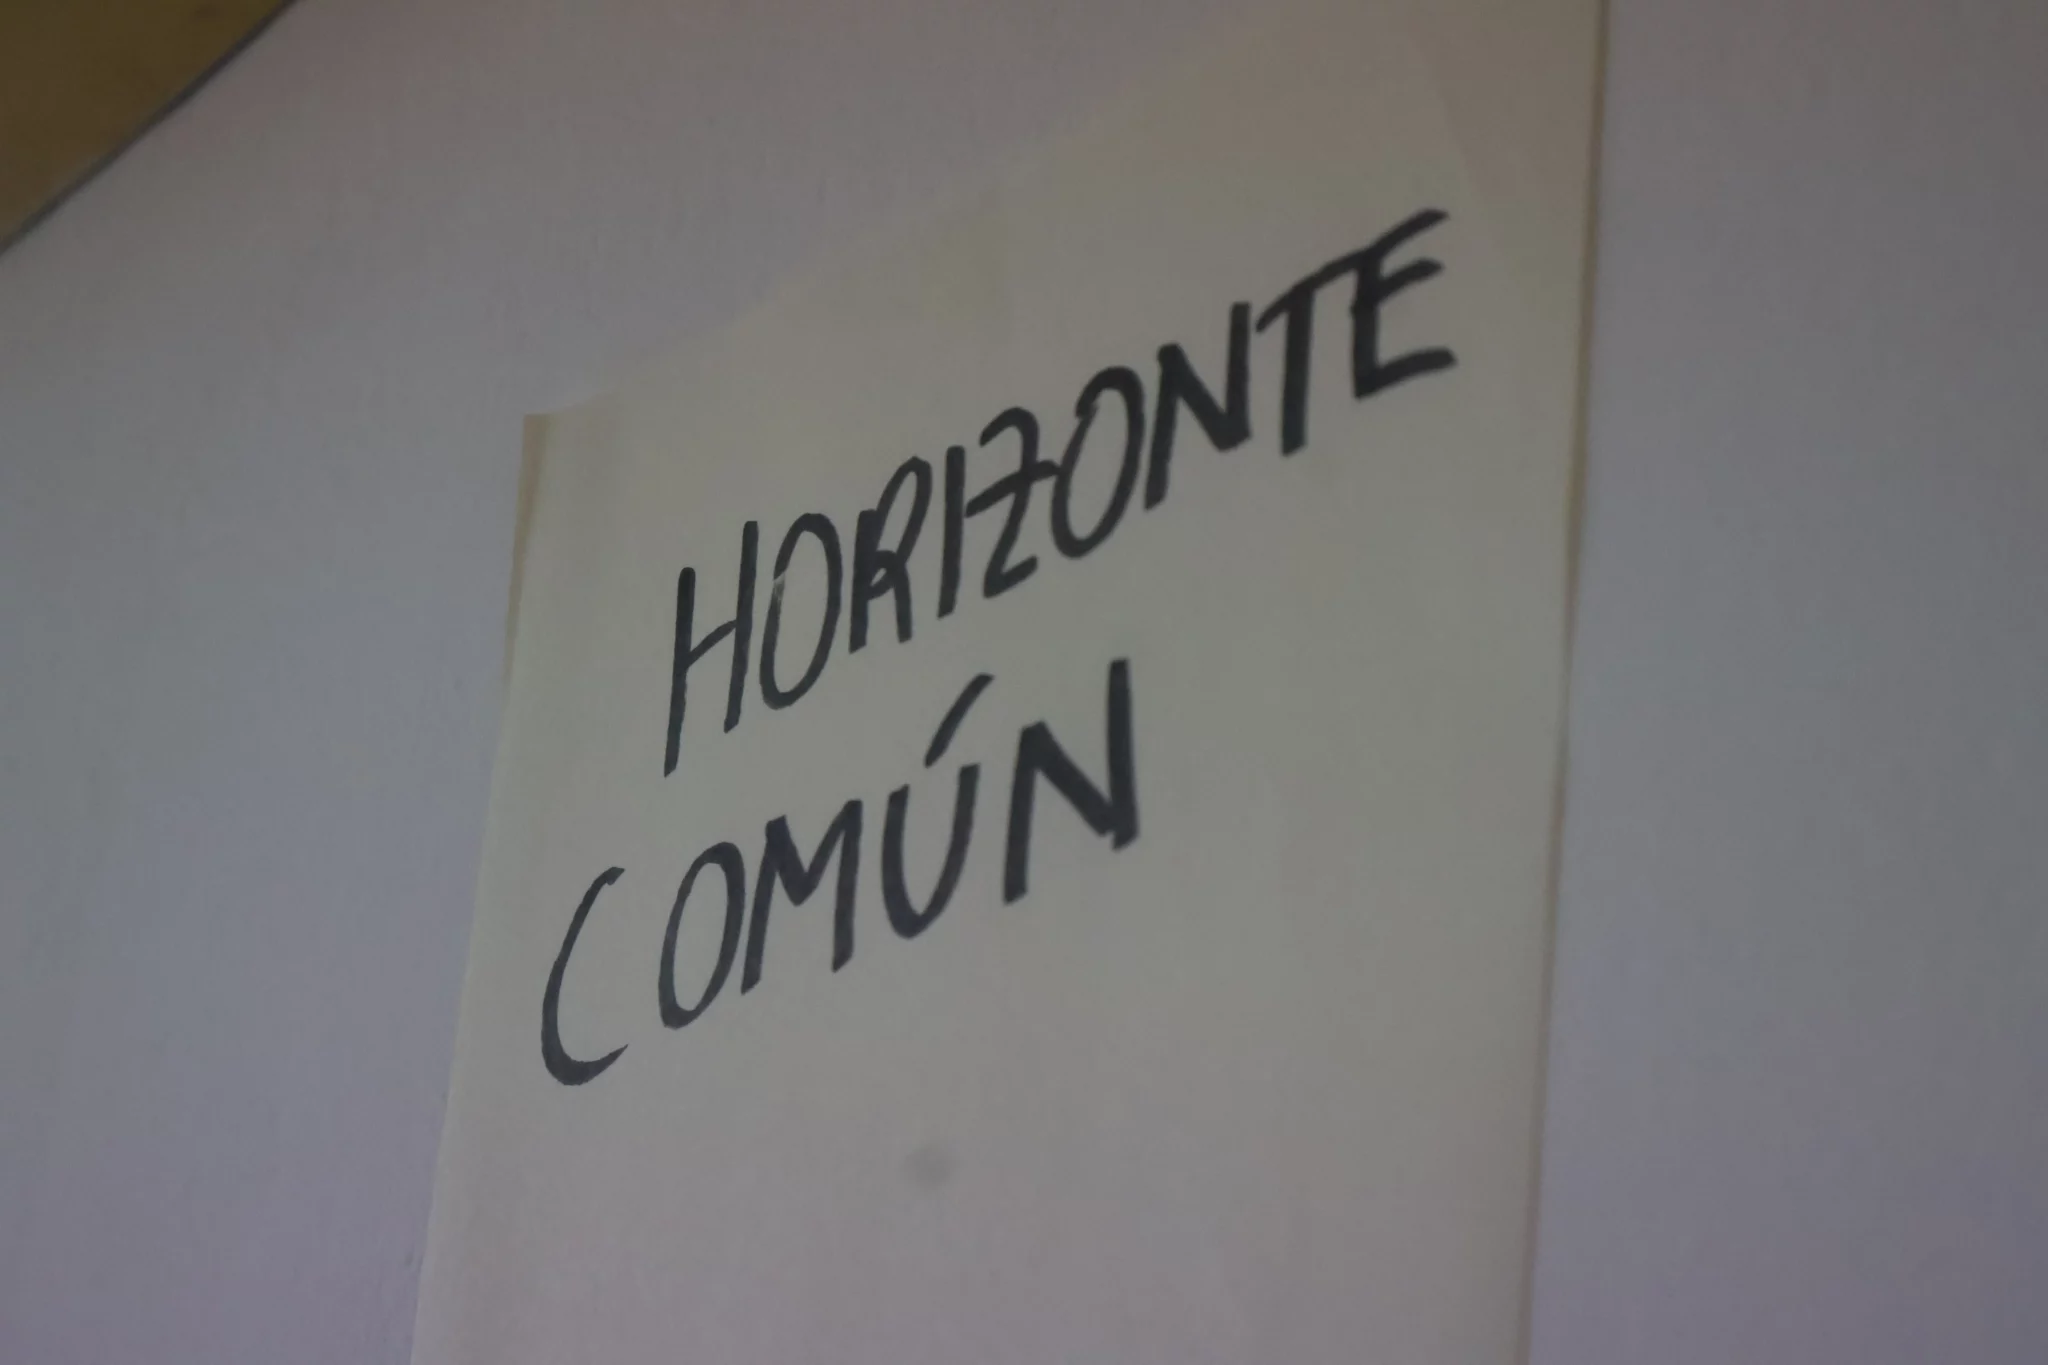 HORIZONTE
COMÚN